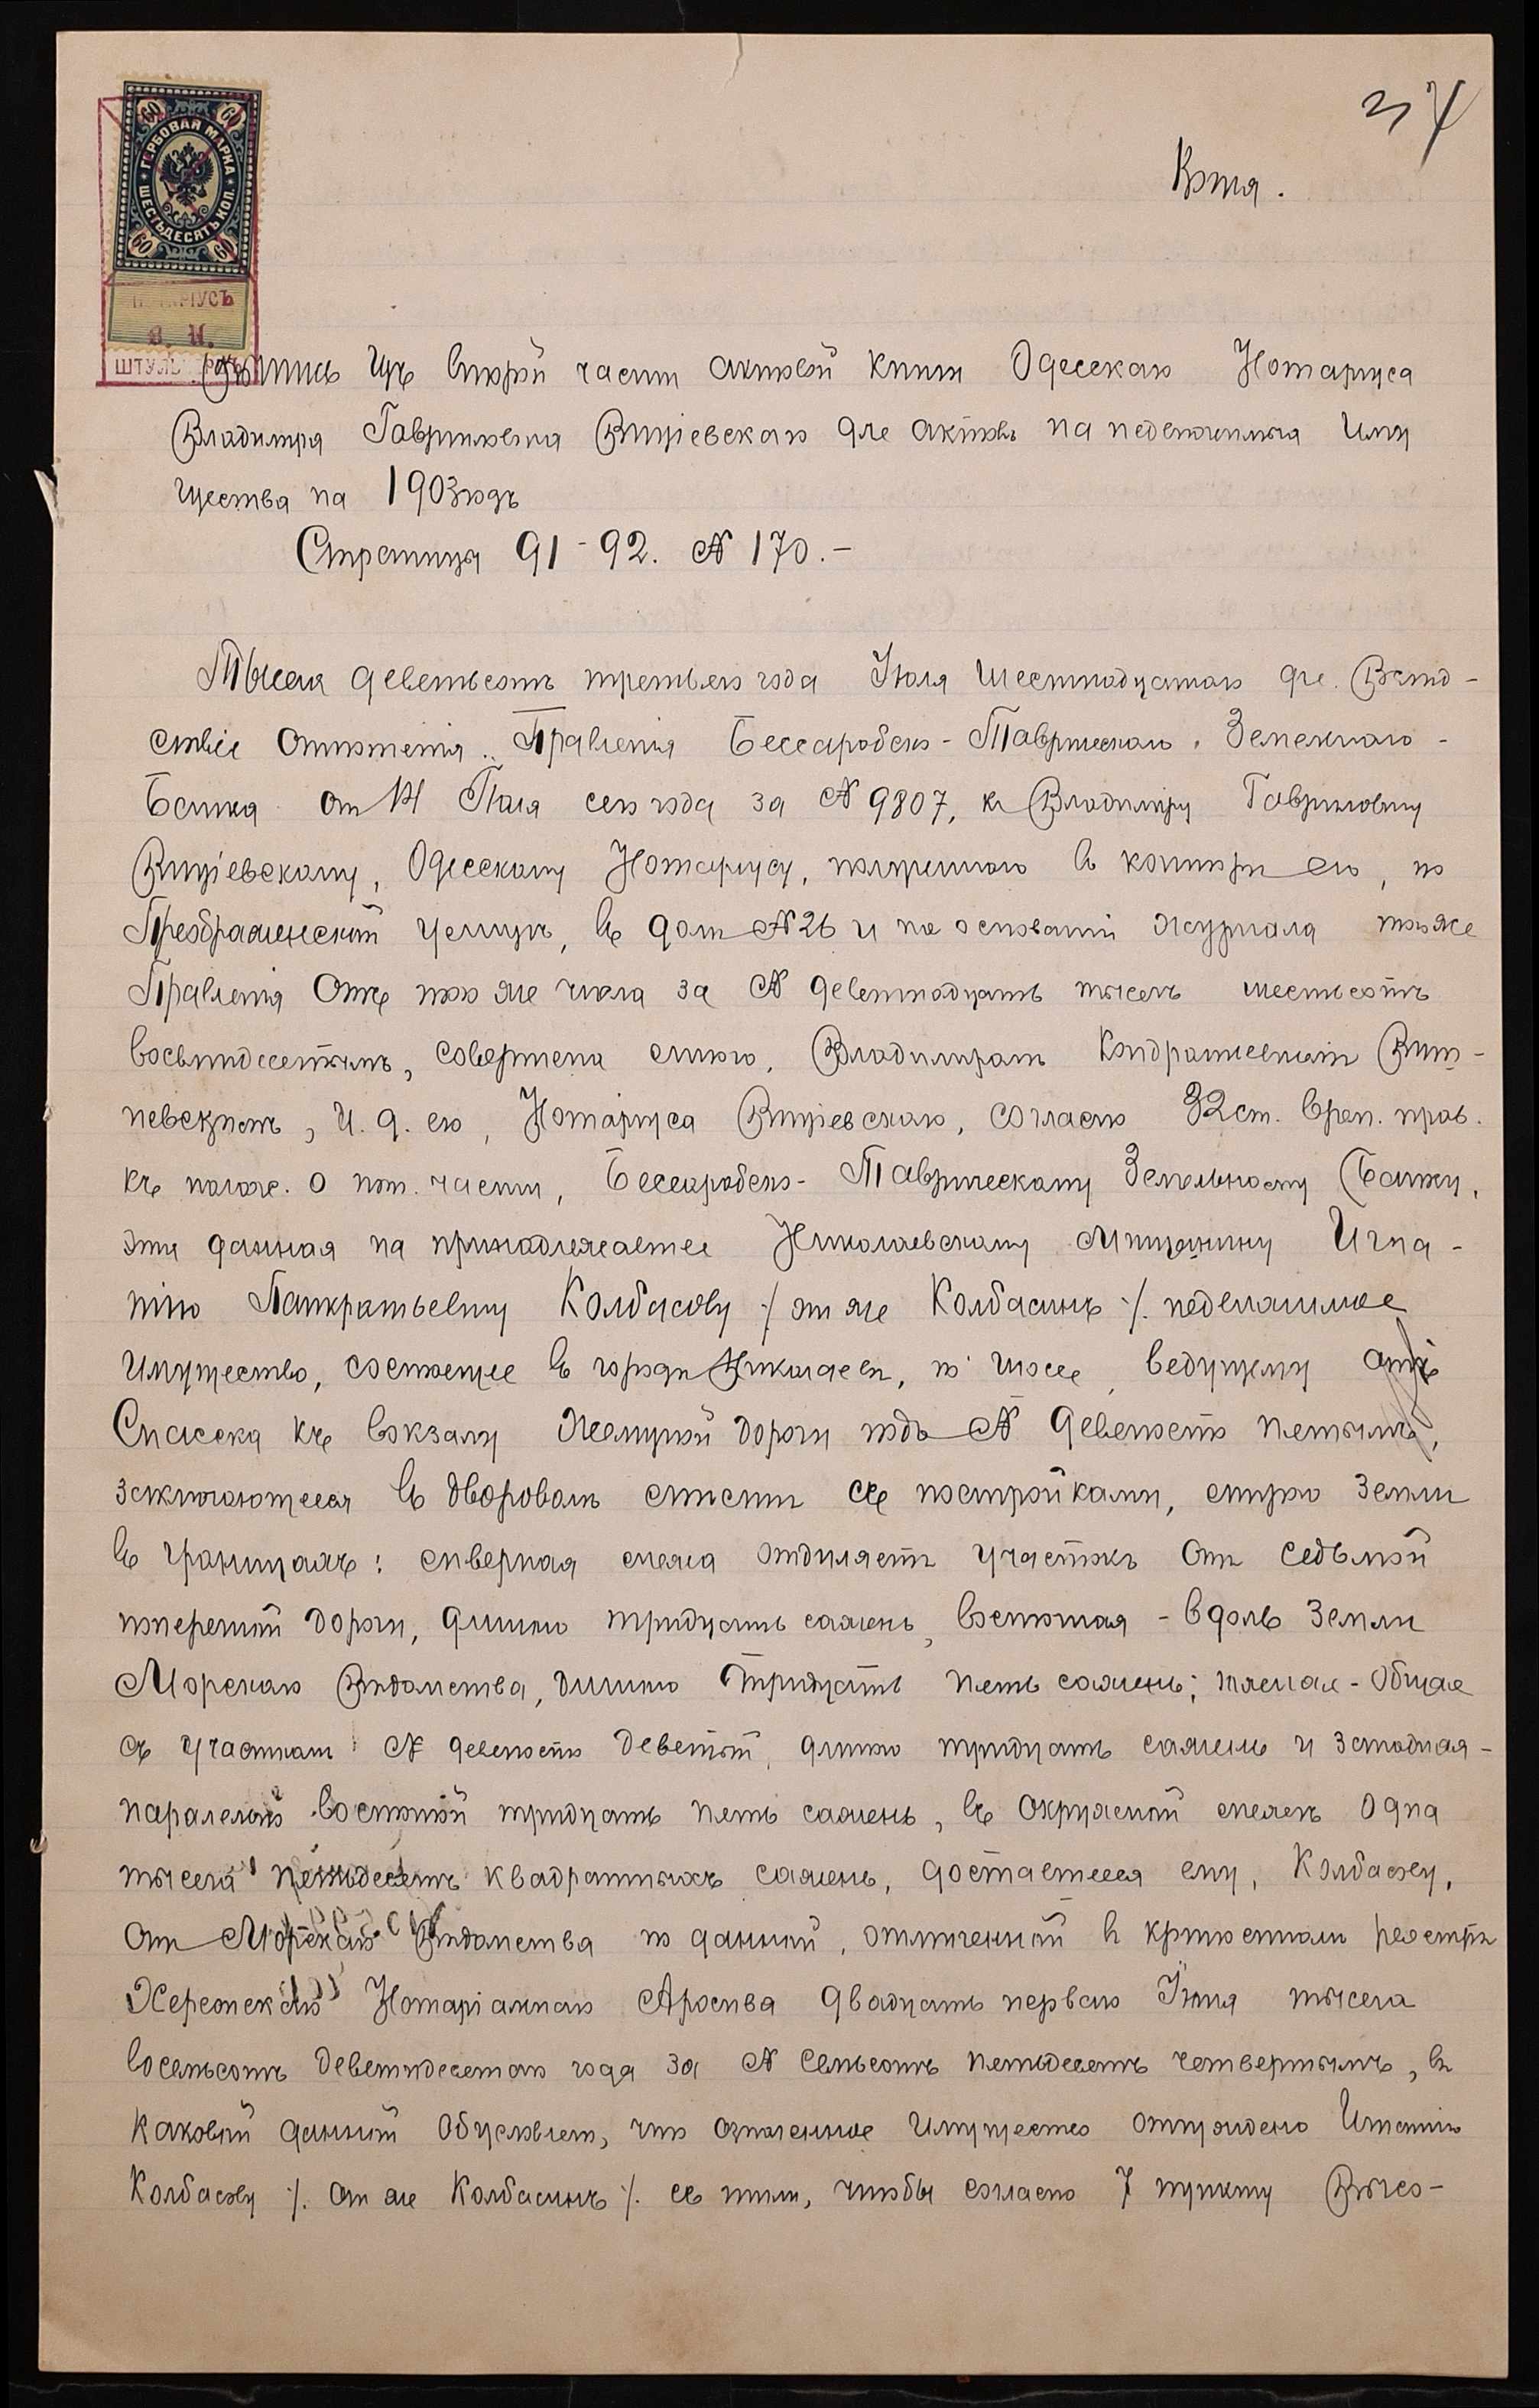 37
Копія.
ГЕРБОВАЯ МАРКА
ШЕСТЬДЕСЯТЪ КОП.
60 60 60 60
В. И.
Выпись изъ второй части актовой книги Одесскаго Нотаріуса
Владиміра Гавриловича для актовъ на недвижимыя иму
щества на 1903 годъ
Страница 91-92. № 170.-
Тысяча девятьсотъ третьяго года Іюля шестнадцатаго дня. Вслѣд-
ствіе отношенія Правленія Бессарабско-Таврическаго Земельнаго
Банка отъ 14 Іюля сего года за № 9807, къ Владиміру Гавриловичу
Одесскому Нотаріусу, полученнаго въ конторѣ его, по
Преображенской улицѣ, въ домѣ № 26 и на основаніи журнала того же
Правленія отъ того же числа за № девятнадцать тысячъ шестьсотъ
восьмидесятымъ, совершена мною, Владиміромъ Кондратьевичемъ
и. д. его, Нотаріуса согласно 32 ст. врем. прав.
къ полож. о нот. части, Бессарабско-Таврическому Земельному Банку,
эта данная на принадлежащее Николаевскому мѣщанину Игна-
тію Панкратьевичу Колбасову /. онъ же Колбасинъ /. недвижимое
имущество, состоящее въ городѣ Николаевѣ, по шоссе, ведущему отъ
Спасска къ вокзалу желѣзной дороги подъ № девяносто пятымъ,
заключающееся въ дворовомъ мѣстѣ съ постройками, мѣрою земли
въ границахъ: сѣверная межа отдѣляетъ участокъ отъ седьмой
поперечной дороги, длиною тридцать саженъ, восточная - вдоль земли
Морскаго Вѣдомства, длиною тридцать пять саженъ; южная - общая
съ участкомъ № девяносто девятый, длиною тридцать саженъ и западная -
паралельно восточной тридцать пять саженъ, въ окружной межѣ одна
тысяча пятьдесятъ квадратныхъ саженъ, доставшееся ему, Колбасову,
отъ Морскаго Вѣдомства по данной, отмѣченной въ крѣпостномъ реестрѣ
Херсонскаго Нотаріальнаго Архива двадцать перваго Іюня тысяча
восемьсотъ девяностодесятаго года за № семьсотъ пятьдесятъ четвертымъ, въ
каковой данной обусловлено, что означенное имущество отчуждено Игнатію
Колбасову /. онъ же Колбасинъ /. съ тѣмъ, чтобы согласно 7 пункту Высо-